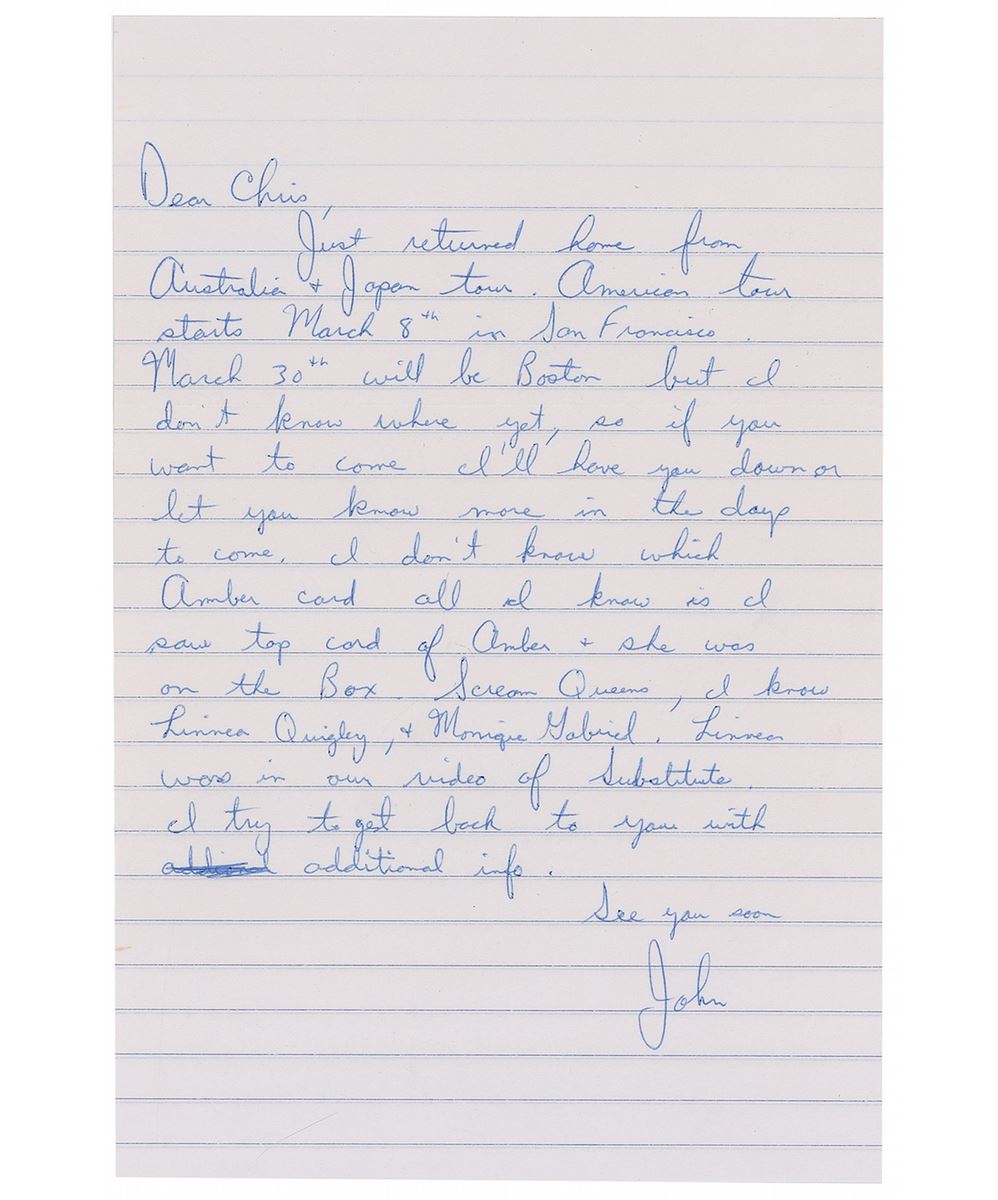 Dear Chris,
Just returned home from
Australia + Japan tour. American tour
starts March 8th in San Francisco.
March 30th will be Boston but I
don't know where yet, so if you
want to come I'll have you down or
let you know more in the days
to come. I don't know which
Amber card all I know is I
saw top card of Amber + she was
on the Box. Scream Queens, I know
Linnea Quigley, + Monique Gabriel. Linnea
was in our video of Substitute.
I try to get back to you with
additional info.
See you soon
John